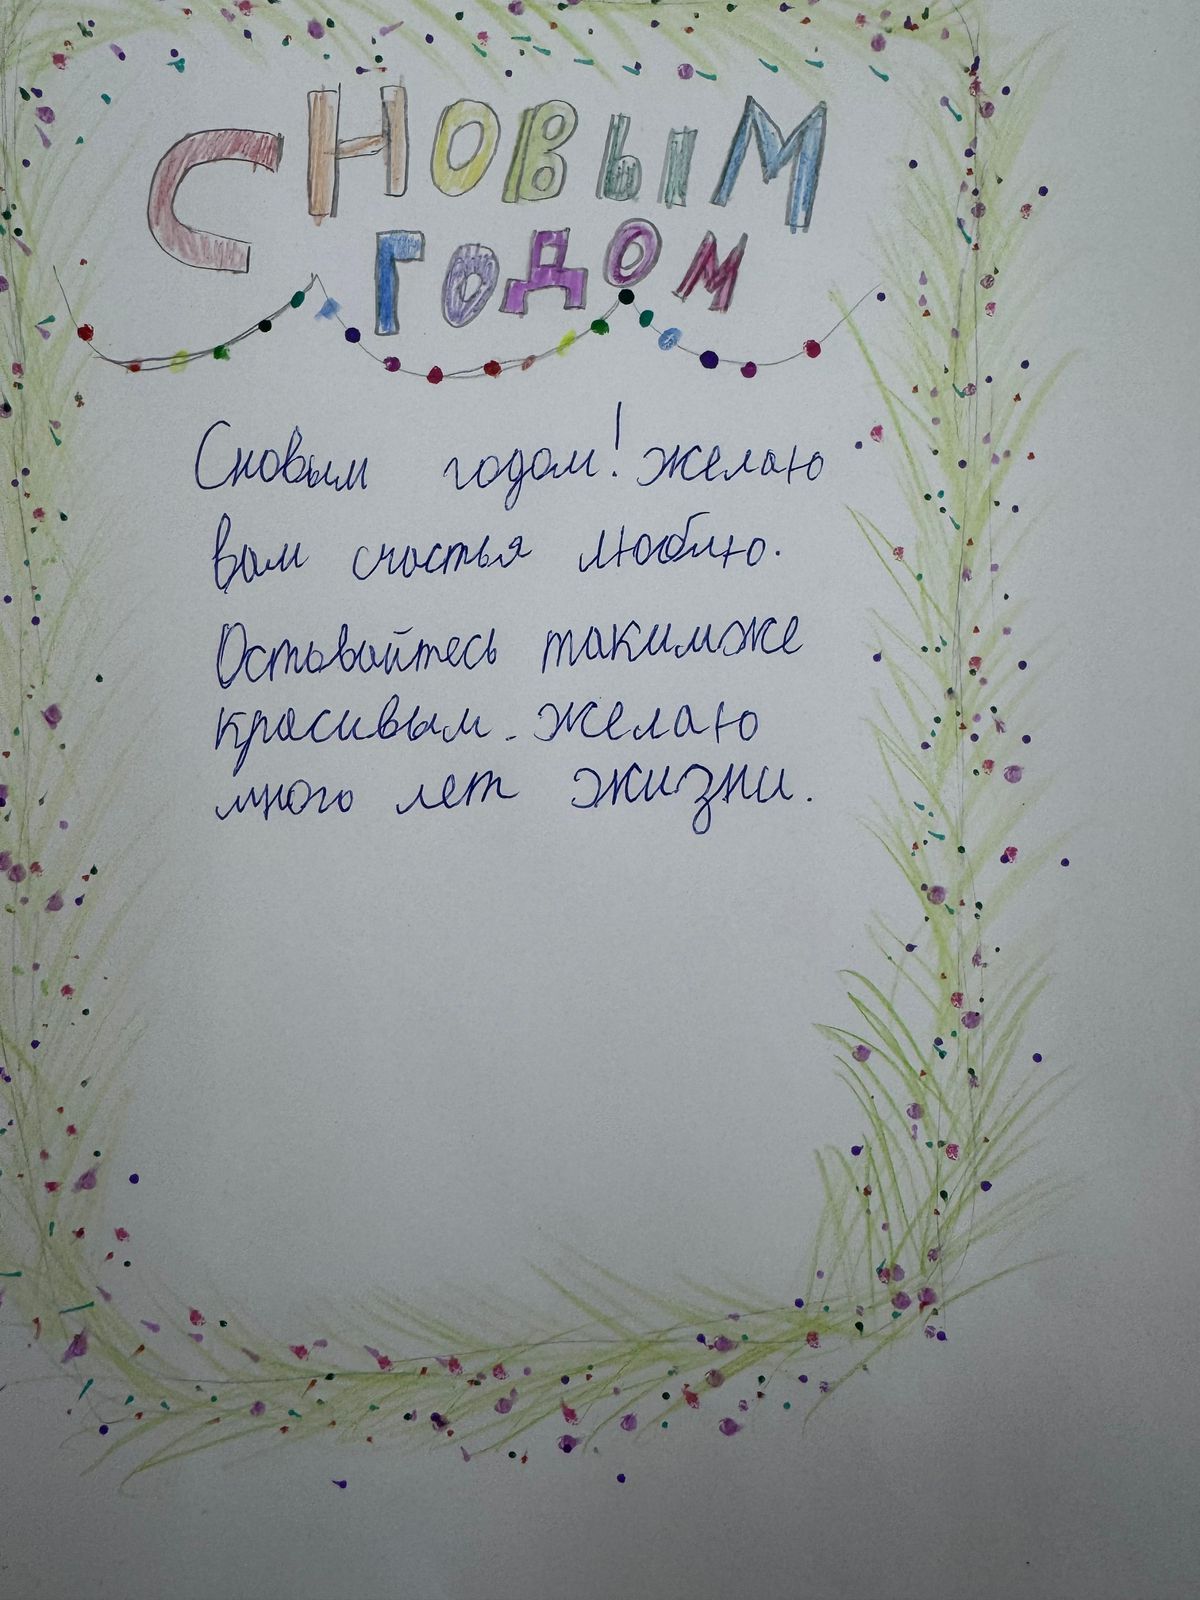 С НОВЫМ
ГОДОМ
Сновым годом! желаю
вам счастья люблю.
Оставайтесь такимже
красивым. желаю
много лет жизни.